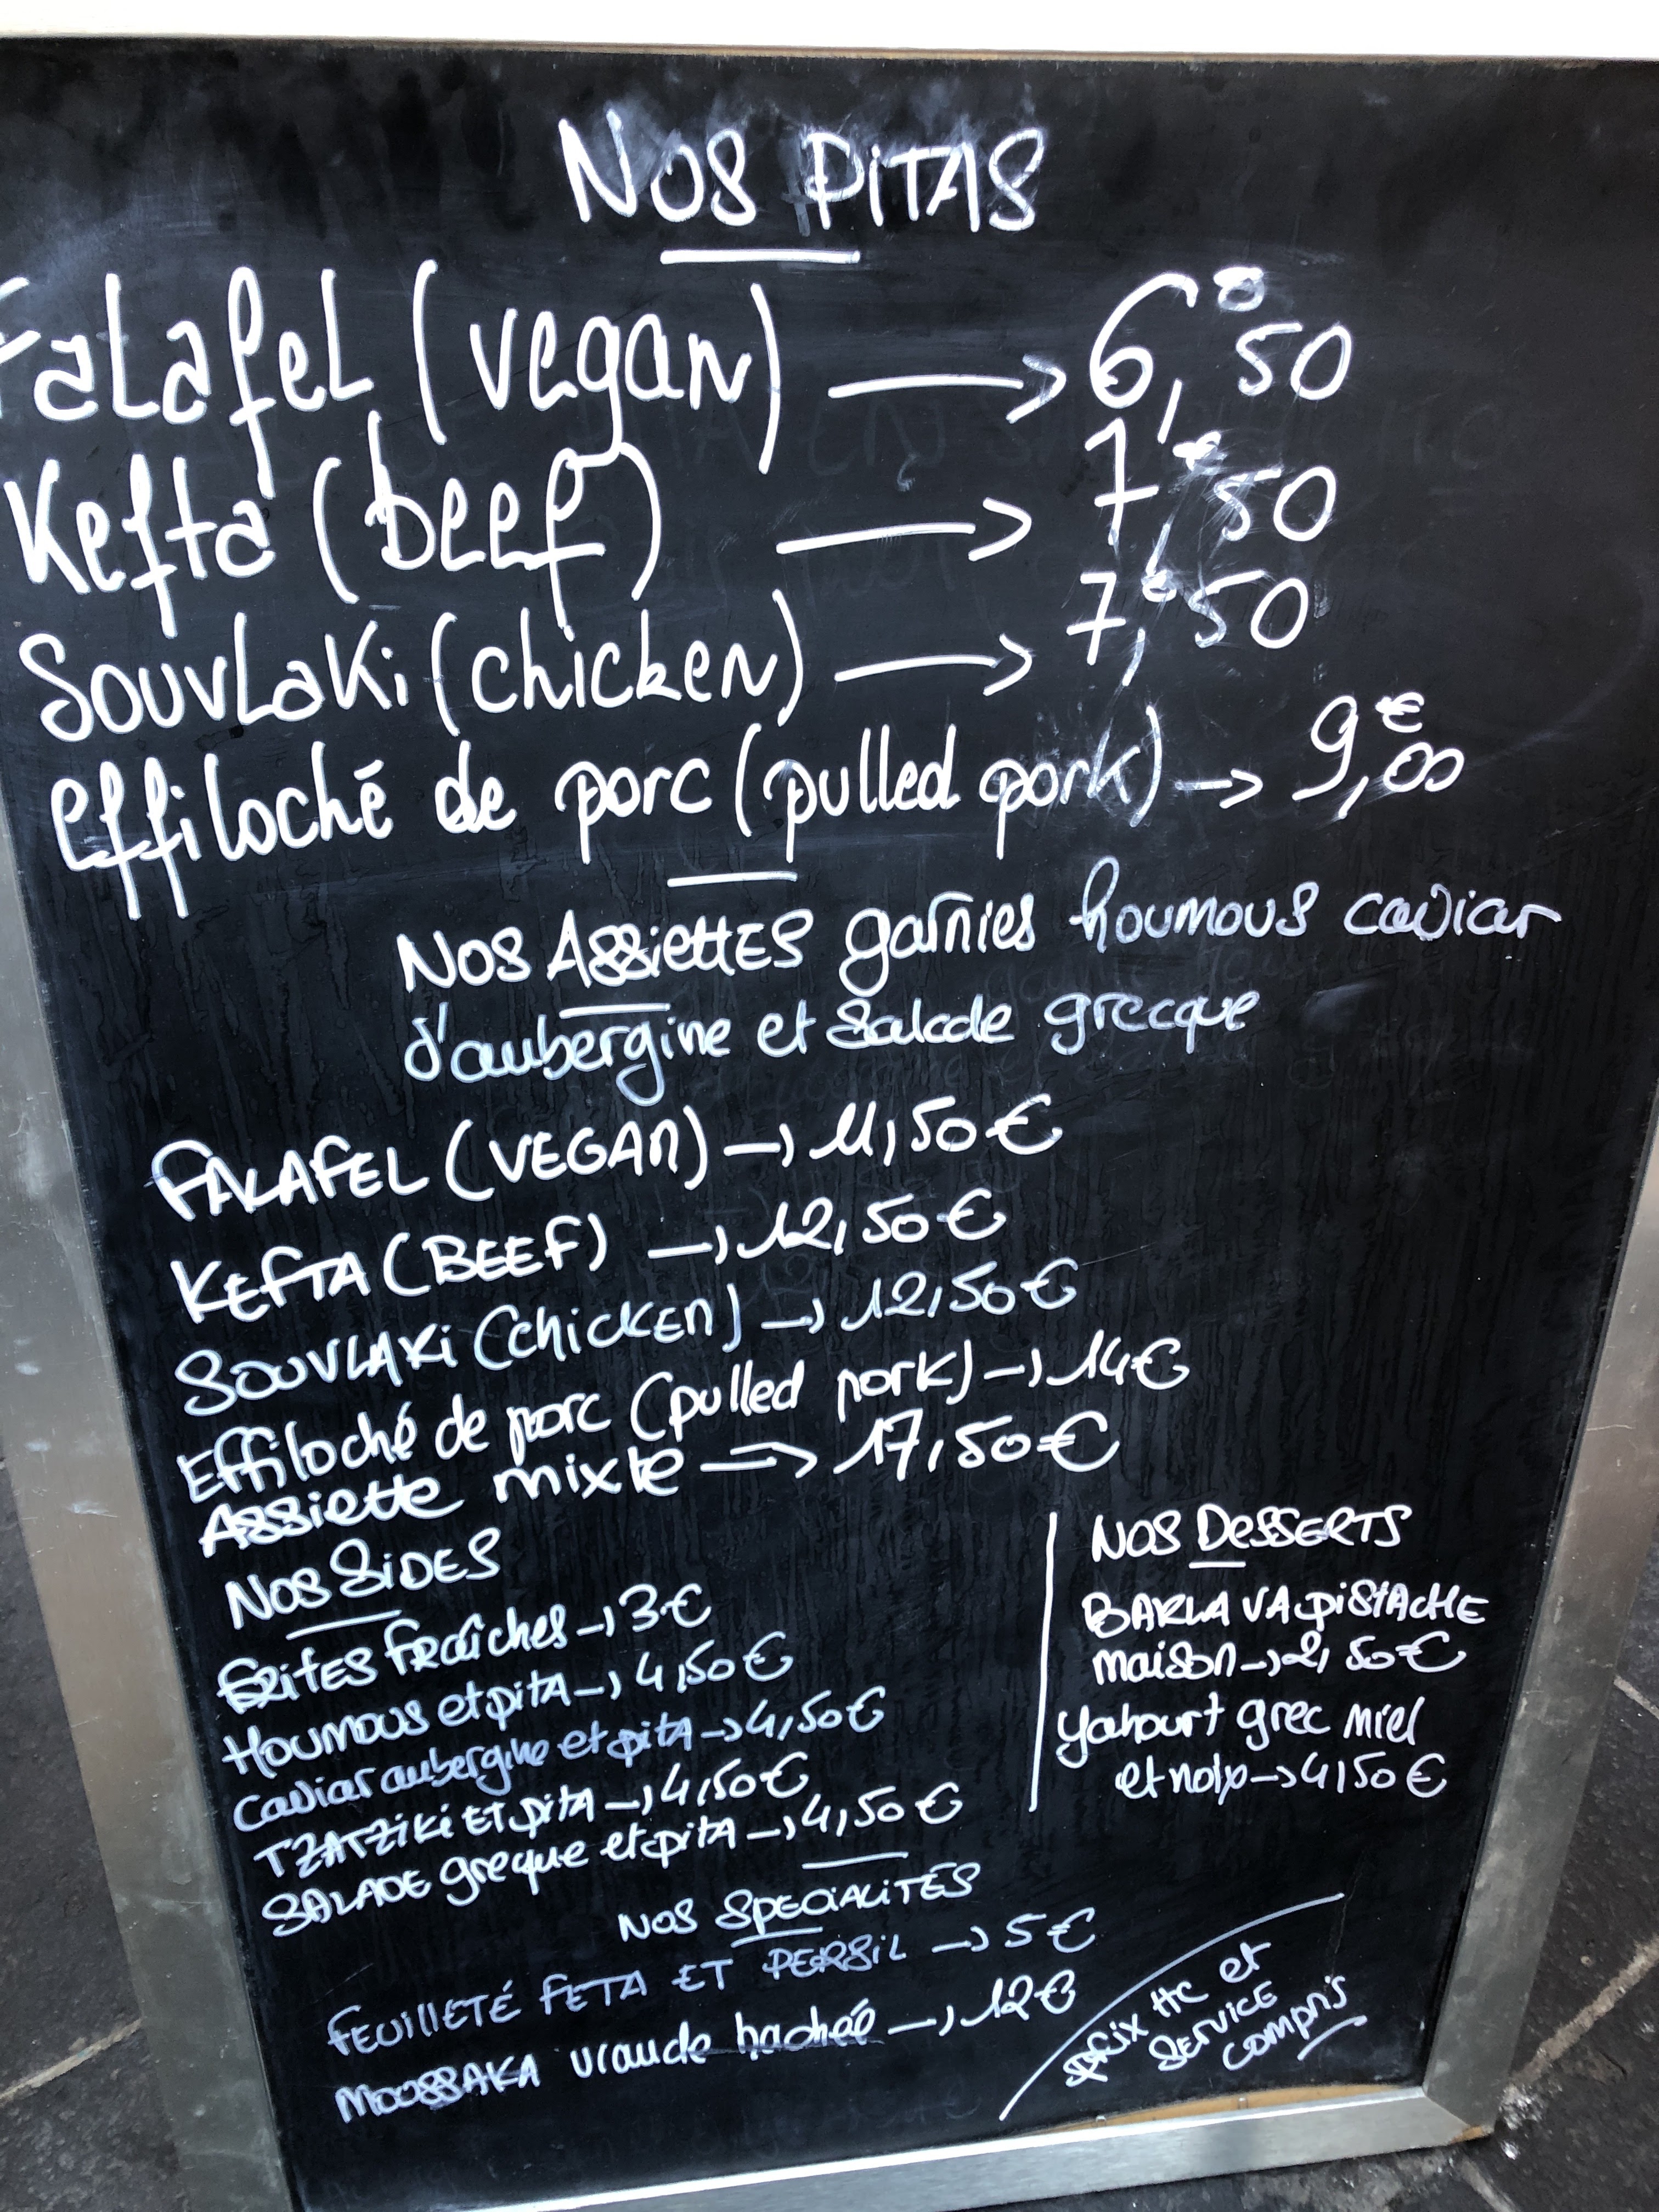 NOS PITAS
Falafel (vegan) → 6,€50
Kefta (beef) → 7,€50
Souvlaki (chicken) → 7,€50
Effiloché de porc (pulled pork) → 9,€00
NOS ASSIETTES garnies houmous caviar
d'aubergine et salade grecque
FALAFEL (VEGAN) → 11,50€
KEFTA (BEEF) → 12,50€
SOUVLAKI (chicKEN) → 12,50€
Effiloché de porc (pulled pork) → 14€
Assiette mixte → 17,50€
NOS SIDES
FRITES fraîches → 3€
HOUMOUS et pita → 4,50€
Caviar aubergine et pita → 4,50€
TZATZIKI ET pita → 4,50€
SALADE greque et pita → 4,50€
NOS DESSERTS
BAKLAVA PISTACHE
maison → 2,50€
yahourt grec miel
et noix → 4,50€
NOS SPECIALITÉS
FEUILLETÉ FETA ET PERSIL → 5€
MOUSSAKA viande hachée → 12€
prix HC et
SERVICE
compris